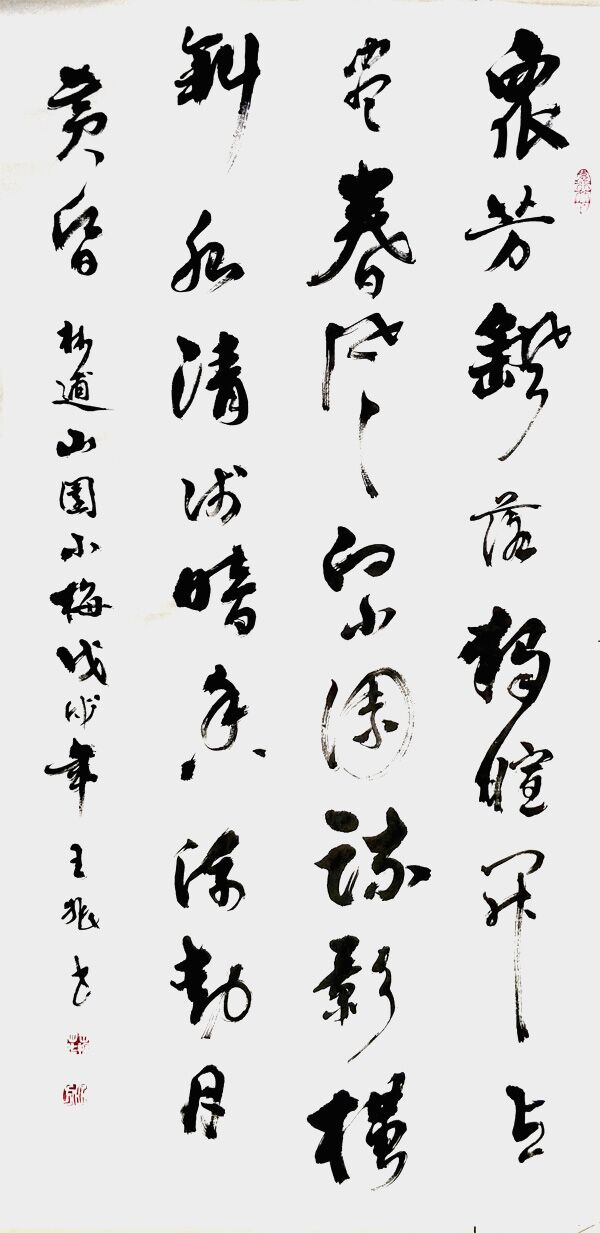 眾芳搖落獨暄妍占
盡春風向小園疏影橫
斜水清淺暗香浮動月
黃昏 林逋山園小梅戊戌年 王兆书